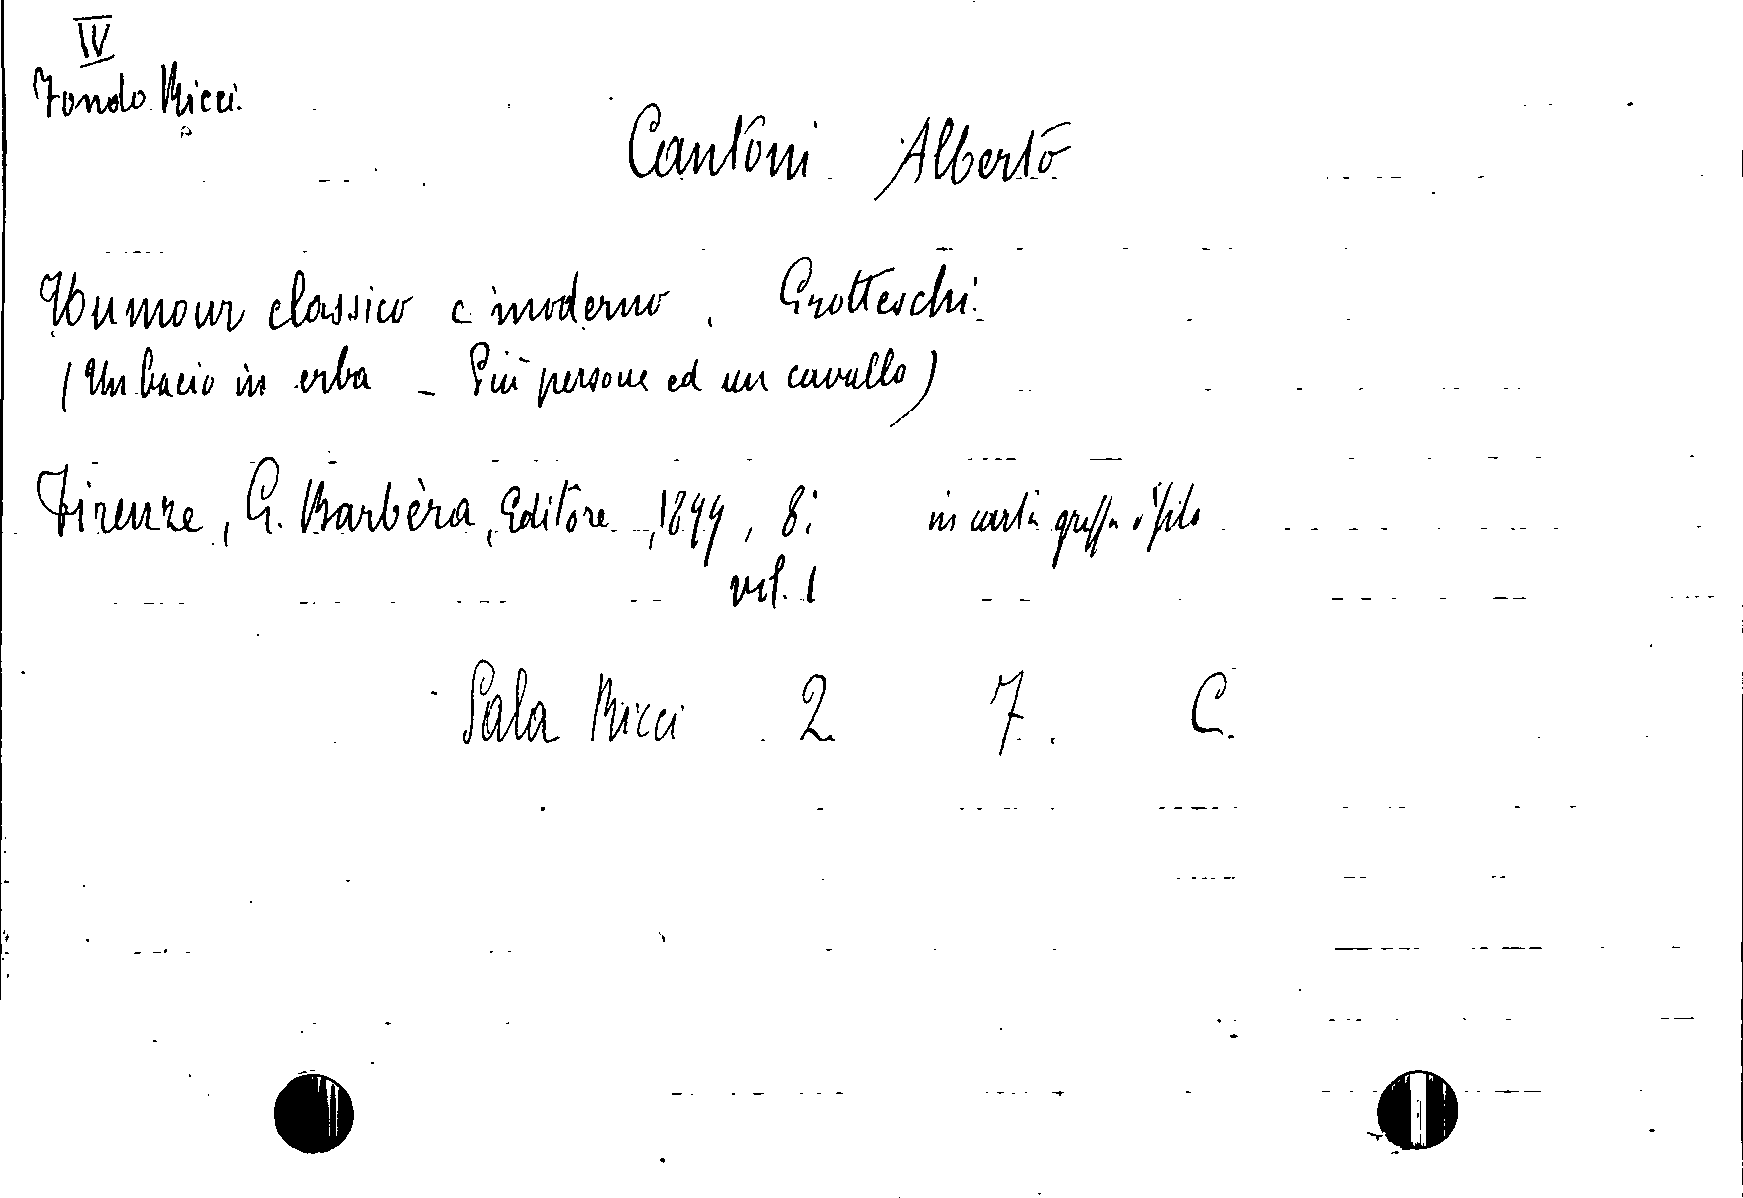 IV
Fondo Ricci.
Cantoni Alberto
Humour classico e moderno. Grotteschi.
(Un bacio in erba - Più persone ed un cavallo)
Firenze, G. Barbèra, Editore, 1899, 8: in carta
vol. 1
Sala Ricci 2. 7. C.